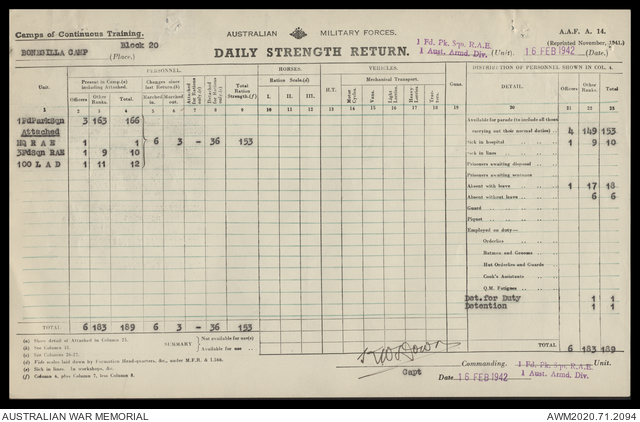 Camps of Continuous Training. AUSTRALIAN MILITARY FORCES. A.A.F. A. 14.
BONEGILLA CAMP Block 20 (Place.) DAILY STRENGTH RETURN. 1 Fd. Pk. Sqn. R.A.E. 1 Aust. Armd. Div. (Unit). 16 FEB 1942 (Date) (Reprinted November, 1941.)
PERSONNEL. HORSES. VEHICLES. DISTRIBUTION OF PERSONNEL SHOWN IN COL. 4.
Unit. Present in Camp(a) including Attached. Changes since last Return.(b) Attached for Rations only.(c) Detached for Rations only.(d) Total Ration Strength.(f) Ration Scale.(d) H.T. Mechanical Transport. Guns. DETAIL. Officers. Other Ranks. Total.
Officers. Other Ranks. Total. Marched in. Marched out. I. II. III. Motor Cycles. Vans. Light Lorries. Heavy Lorries.
1 2 3 4 5 6 7 8 9 10 11 12 13 14 15 16 17 18 19 20 21 22 23
1FdParkSqn 3 163 166 Available for parade (to include all those
Attached carrying out their normal duties) 4 149 153
HQ R A E 1 1 6 3 - 36 153 Sick in hospital 1 9 10
3FdSqn RAE 1 9 10 Sick in lines
100 L A D 1 11 12 Prisoners awaiting disposal
Prisoners awaiting sentence
Absent with leave 1 17 18
Absent without leave 6 6
Guard
Piquet
Employed on duty—
Orderlies
Batmen and Grooms
Hut Orderlies and Guards
Cook's Assistants
Q.M. Fatigues
Det. for Duty 1 1
Detention 1 1
TOTAL 6 183 189 6 3 - 36 153
SUMMARY Not available for use(e)
Available for use
TOTAL 6 183 189
(a) Show detail of Attached in Column 23.
(b) See Column 11.
(c) See Columns 20-27.
(d) Fish scales laid down by Formation Head-quarters, &c., under M.F.R. & I.166.
(e) Sick in lines. In workshops, &c.
(f) Column 6, plus Column 7, less Column 8.
Capt Commanding. 1 Fd. Pk. Sqn. R.A.E. 1 Aust. Armd. Div. Unit.
Date 16 FEB 1942
AUSTRALIAN WAR MEMORIAL AWM2020.71.2094